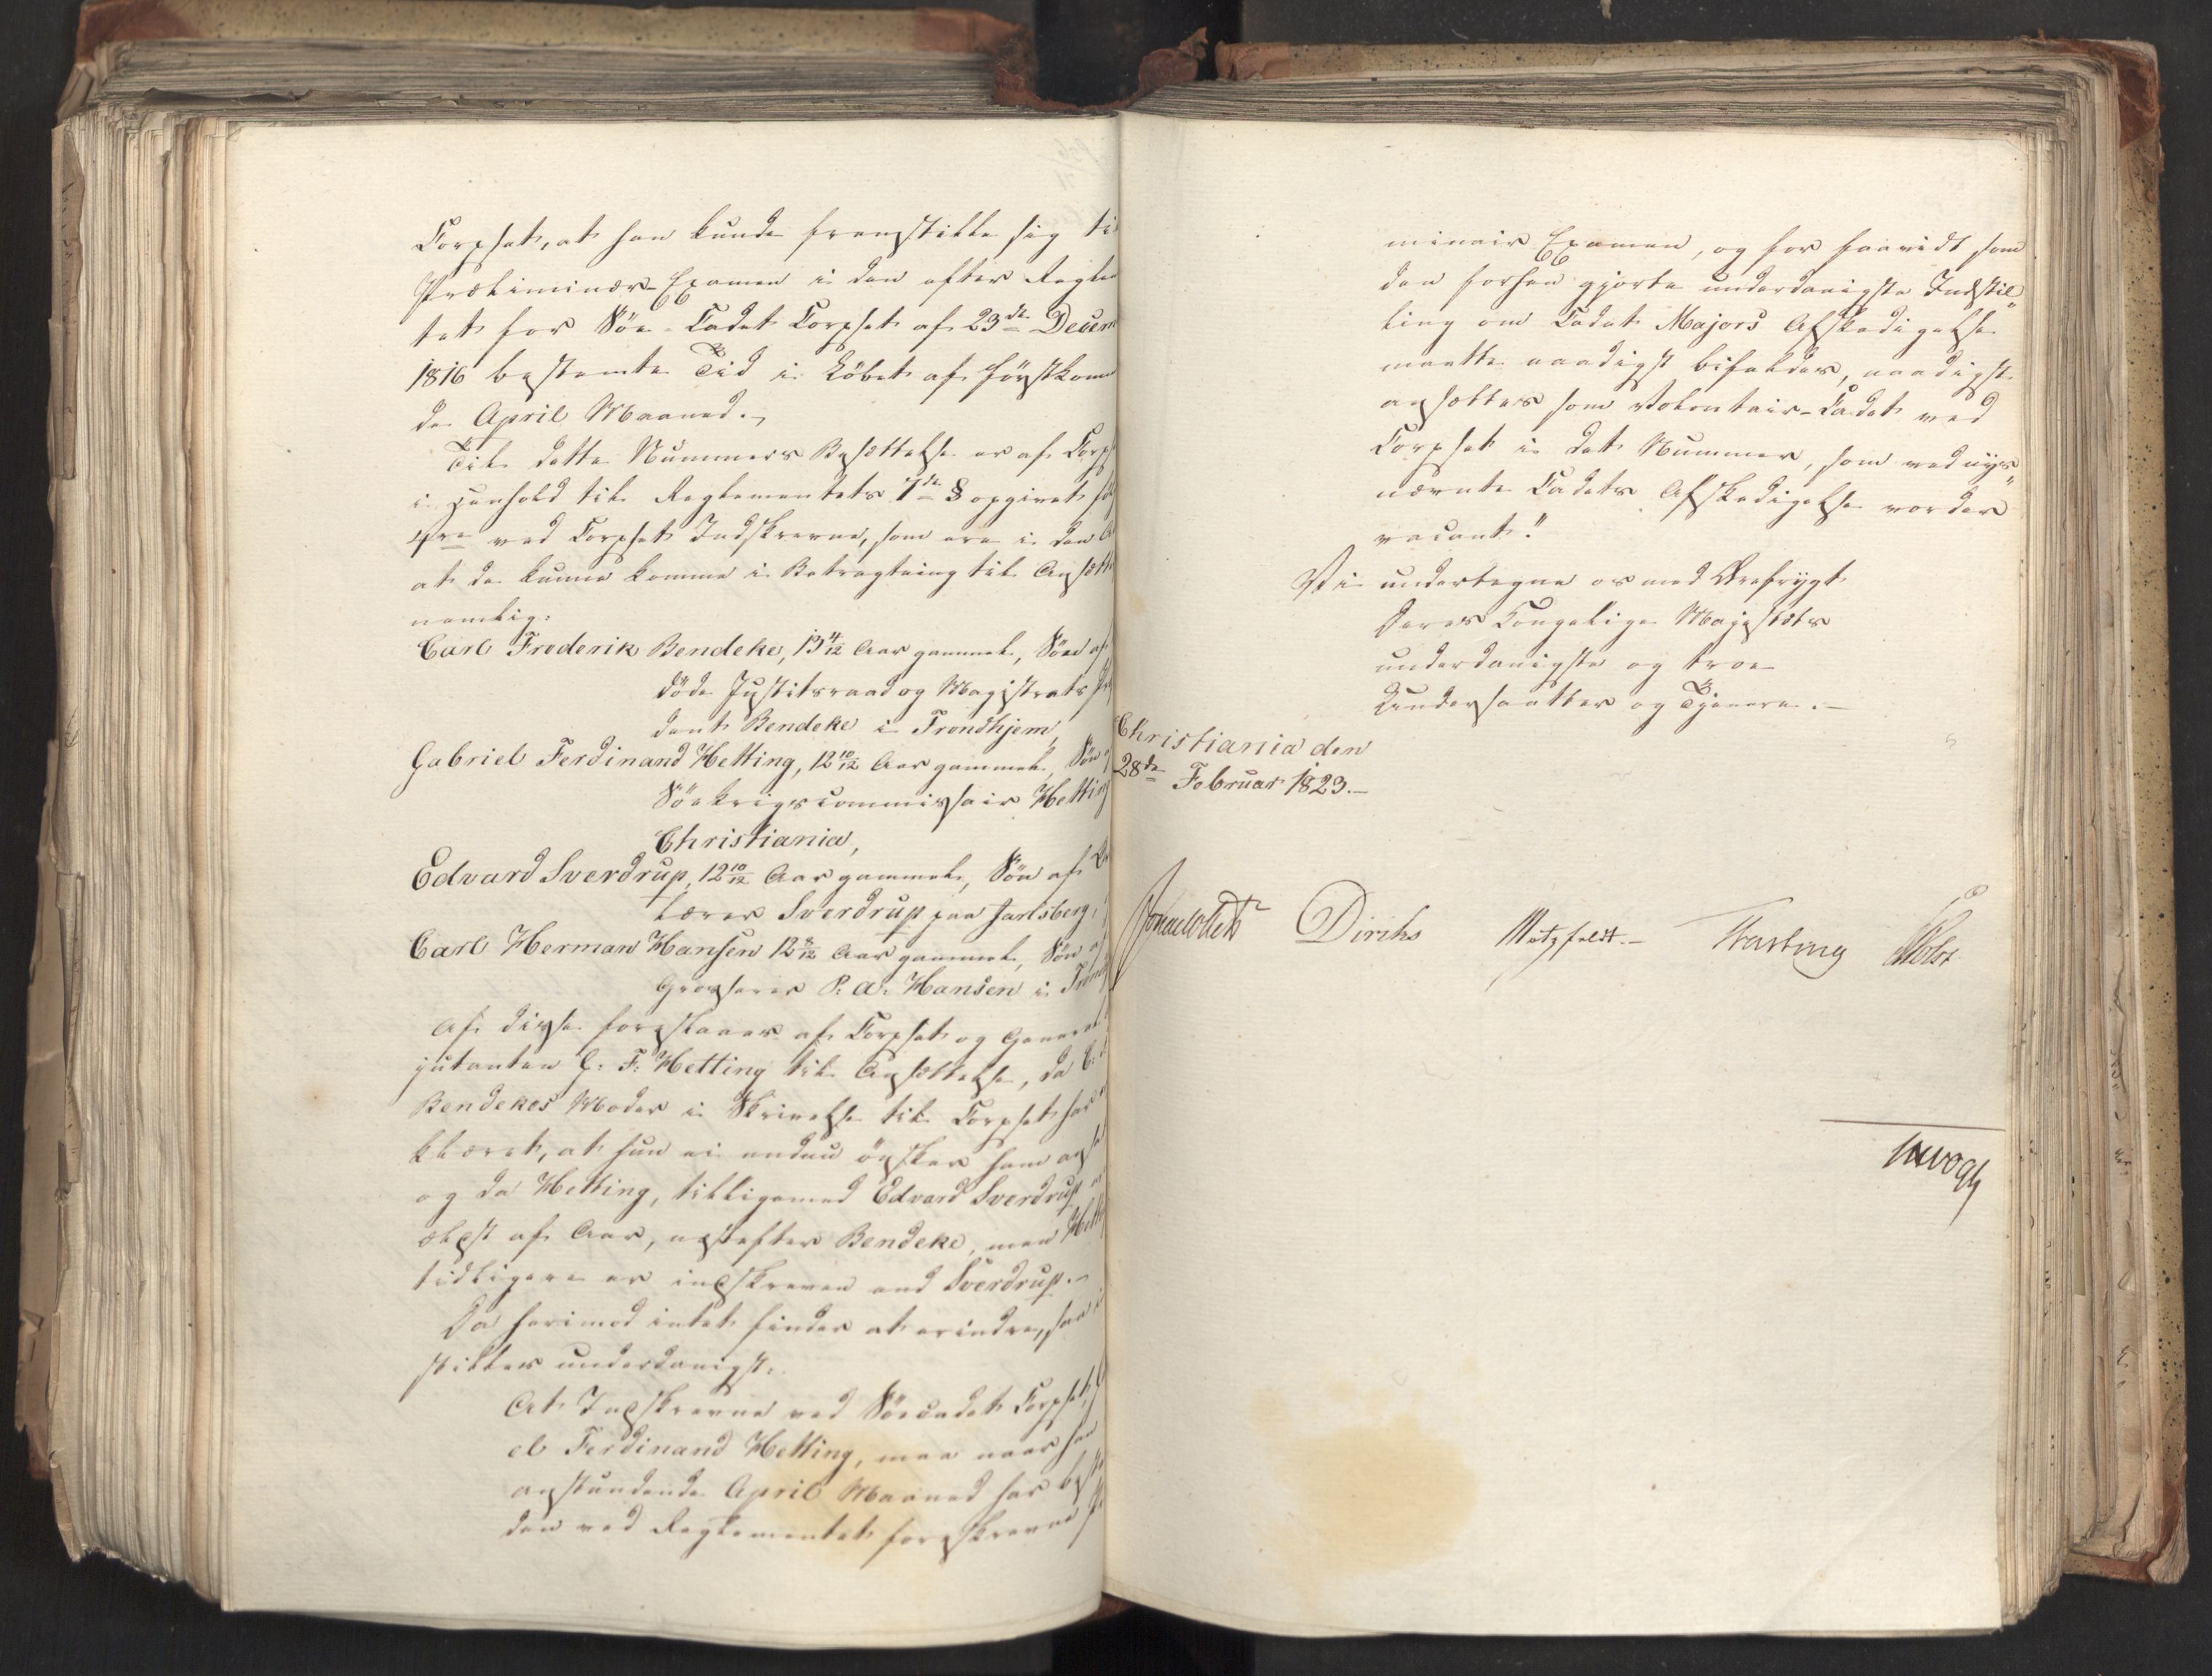 Corpset, at han kunde fremstille sig til
Præliminær-Examen i den efter Reglem
tet for Søe-Cadet Corpset af 23de Decem
1816 bestemte Tid i Löbet af förstkom
de April Maaned.
Til dette Nummers Besættelse er af Corps
i Henhold til Reglementets 7de § opgivet
ved Corpset Indskrevne, som ere i den
at de kunne komme i Betragtning til Ansætt
nemlig:
Carl Frederik Bendeke, 13 4/12 Aar gammel, Sön af
döde Justitsraad og Magistrats Præ
dent Bendeke i Trondhjem,
Gabriel Ferdinand Hetting, 12 10/12 Aar gammel, Sön
Söekrigscommissair Hetting
Christiania,
Edvard Sverdrup, 12 10/12 Aar gammel, Sön af
lærer Sverdrup paa Jarlsberg,
Carl Herman Hansen 12 8/12 Aar gammel, Sön af
Grosserer P. A. Hansen i Trond
Af disse foreslaaes af Corpset og General
jutanten G. F. Hetting til Ansættelse, da C.
Bendekes Moder i Skrivelse til Corpset har
klæret, at hun ei endnu önsker ham ansat
og da Hetting, tilligemed Edvard Sverdrup er
ælst af Aar, næstefter Bendeke, men Hett
tidligere er indskreven end Sverdrup.
Da herimod intet findes at erindre, saa
stilles underdanigst:
At Indskrevne ved Söecadet Corpset,
el Ferdinand Hetting, maa naar han
anstundende April Maaned har best
den ved Reglementet foreskrevne
minair Examen, og for saavidt som
den forhen gjorte underdanigste Indstil
ling om Cadet Majors Afskedigelse
maatte naadigst bifaldes, naadigst
ansættes som Volontair-Cadet ved
Corpset i det Nummer, som ved nys
nævnte Cadets Afskedigelse vorder
vacant."
Vi undertegne os med Ærefrygt
Deres Kongelige Majestæts
underdanigste og troe
Undersaatter og Tjenere.
Christiania den
28de Februar 1823.
Jonas Collett Diriks Motzfeldt. Fasting Holst
JHVogt